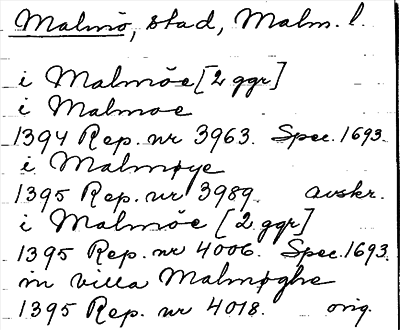 Malmö, stad, Malm. l.
i Malmöe [2 ggr]
i Malmoe
1394 Rep. nr 3963. Spec. 1693.
i Malmøye
1395 Rep. nr 3989. avskr.
i Malmöe [2 ggr]
1395 Rep. nr 4006. Spec. 1693.
in villa Malmøghe
1395 Rep. nr 4018. orig.